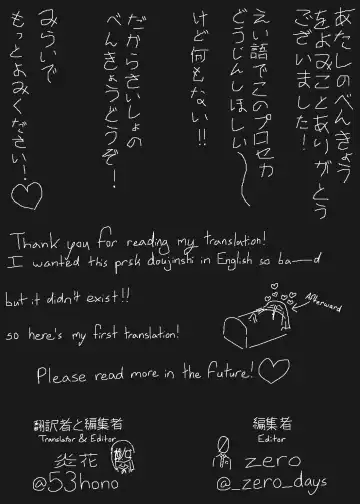 あたしのべんきょう
をよみことありがとう
ございました！
えい語でこのプロセカ
どうじんしほしい〜
けど何もない!!
だからさいしょの
べんきょうどうぞ！
みらいで
もっとよみください！♡
Thank you for reading my translation!
I wanted this prsk doujinshi in English so ba—d
but it didn't exist!!
Afterward
so here's my first translation!
Please read more in the future! ♡
翻訳者と編集者
Translator & Editor
炎花
@53hono
編集者
Editor
zero
@_zero_days